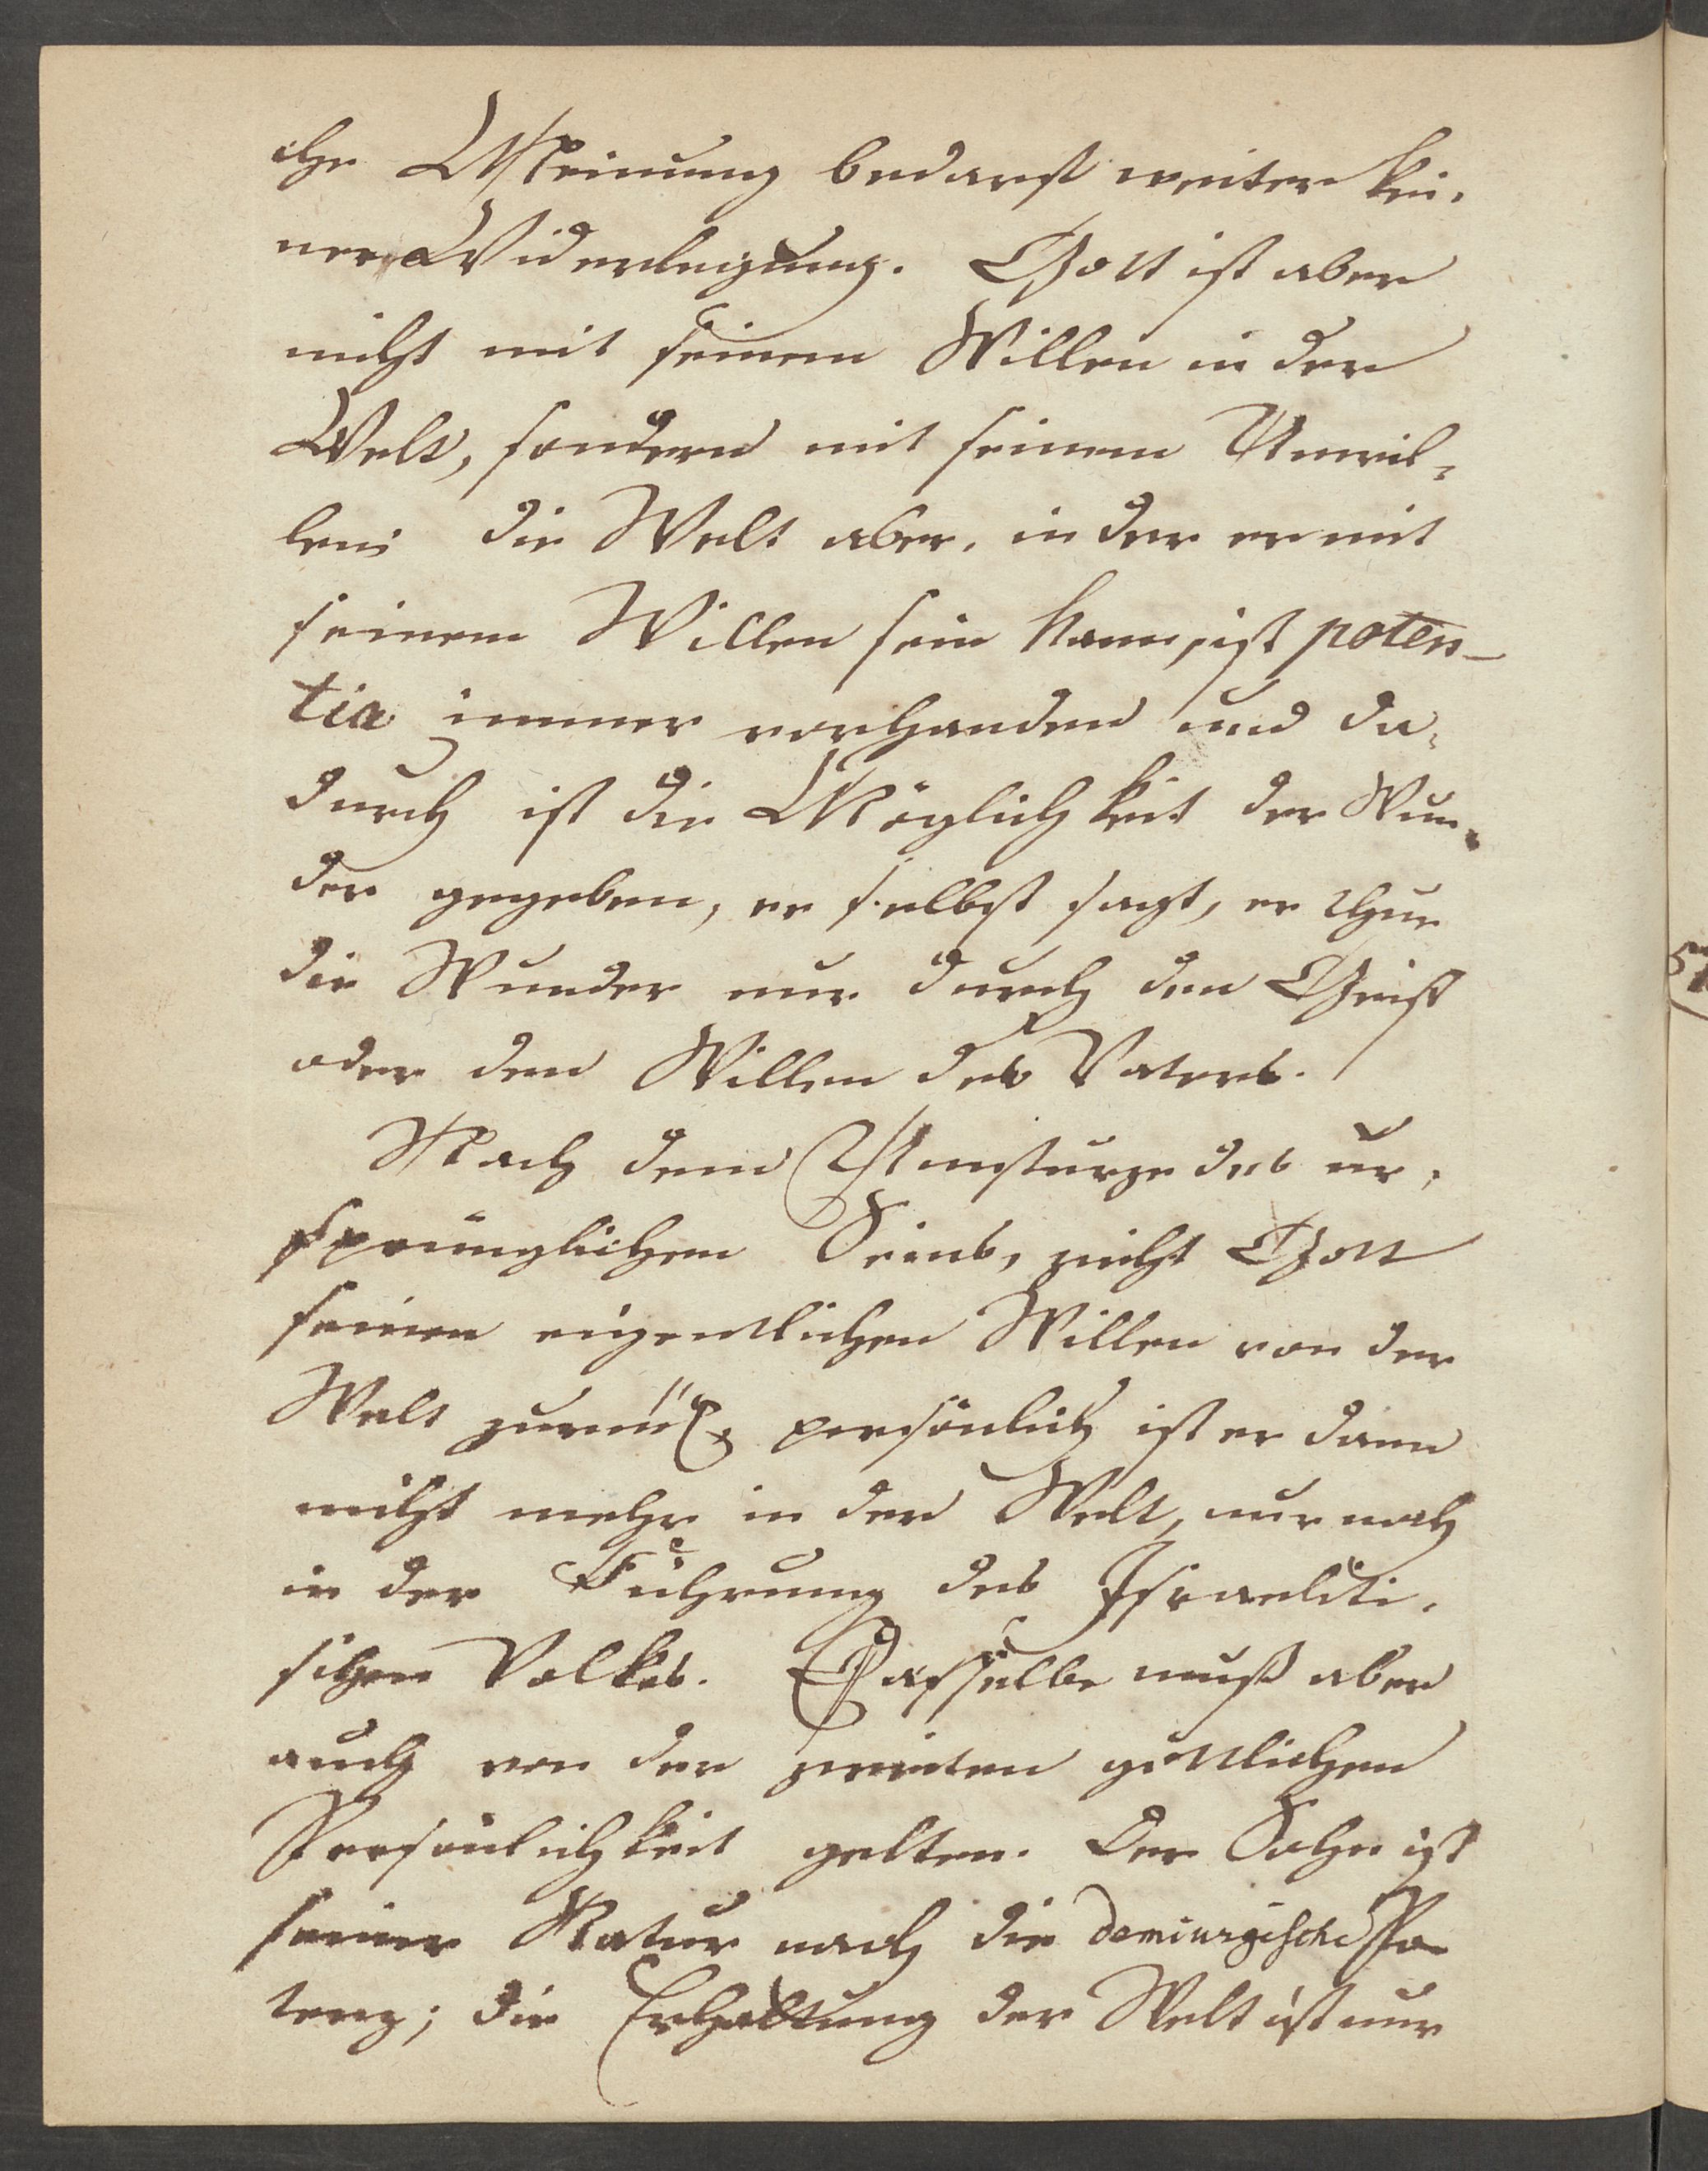 che Meinung bedarf weiter kei-
ner Widerlegung. Gott ist aber
nicht mit seinem Willen in der
Welt, sondern mit seinem Unwil-
len; die Welt aber, in der er mit
seinem Willen sein kann, ist poten-
tia immer vorhanden und da-
durch ist die Möglichkeit der Wun-
der gegeben, er selbst sagt, er thue
die Wunder nur durch den Geist
oder den Willen des Vaters.
Nach dem Umsturze des ur-
sprünglichen Seins, zieht Gott
seinen eigentlichen Willen von der
Welt zurück, persönlich ist er dann
nicht mehr in der Welt, nur noch
in der Führung des Israeliti-
schen Volkes. Dasselbe muß aber
auch von der zweiten göttlichen
Persönlichkeit gelten. Der Sohn ist
seiner Natur nach die demiurgische Po-
tenz; die Erhaltung der Welt ist nur